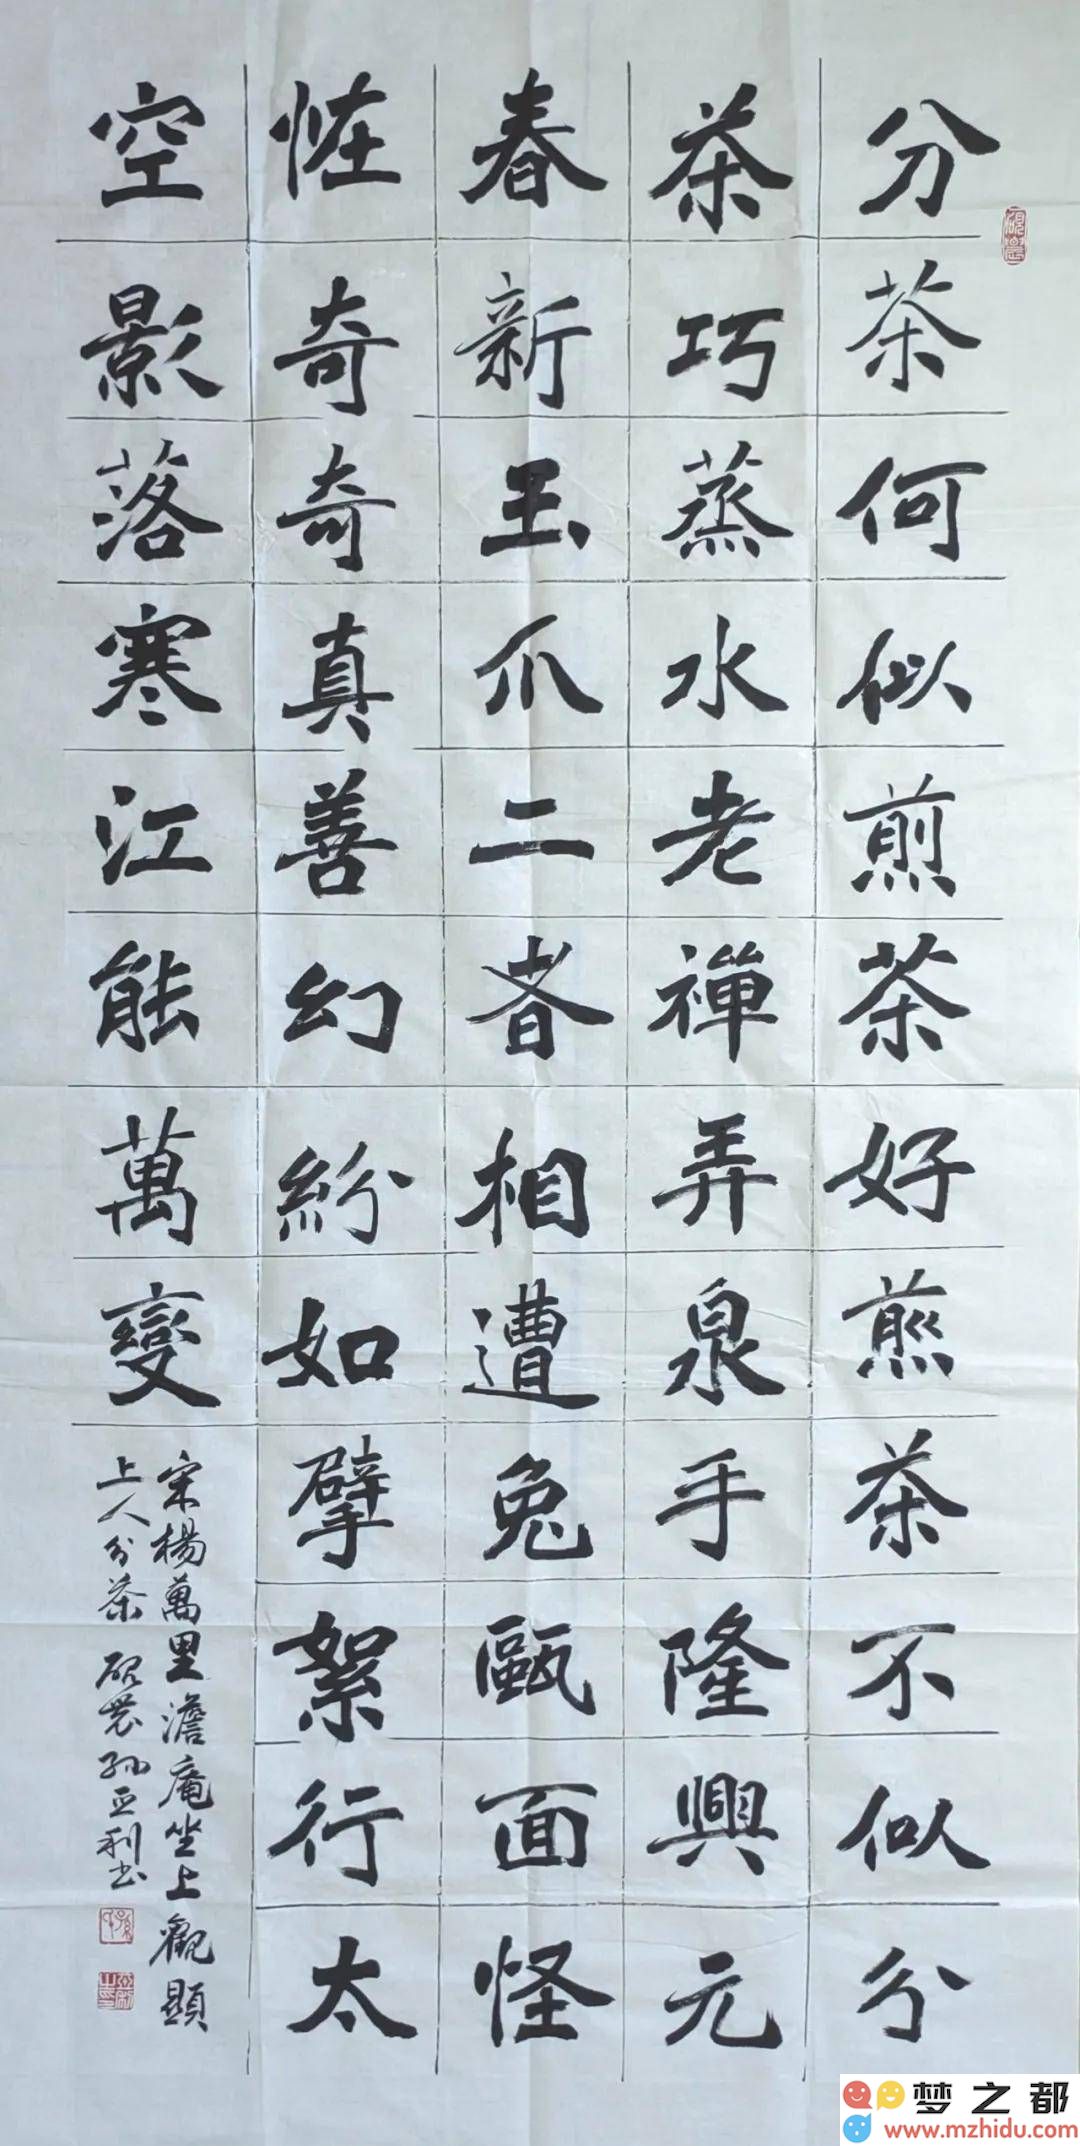 分茶何似煎茶好煎茶不似分
茶巧蒸水老禪弄泉手隆興元
春新玉爪二者相遭兔甌面怪
恠奇奇真善幻紛如擘絮行太
空影落寒江能萬變
宋楊萬里澹庵坐上觀顯
上人分茶 砚農孙亚利书
梦之都
www.mzhidu.com